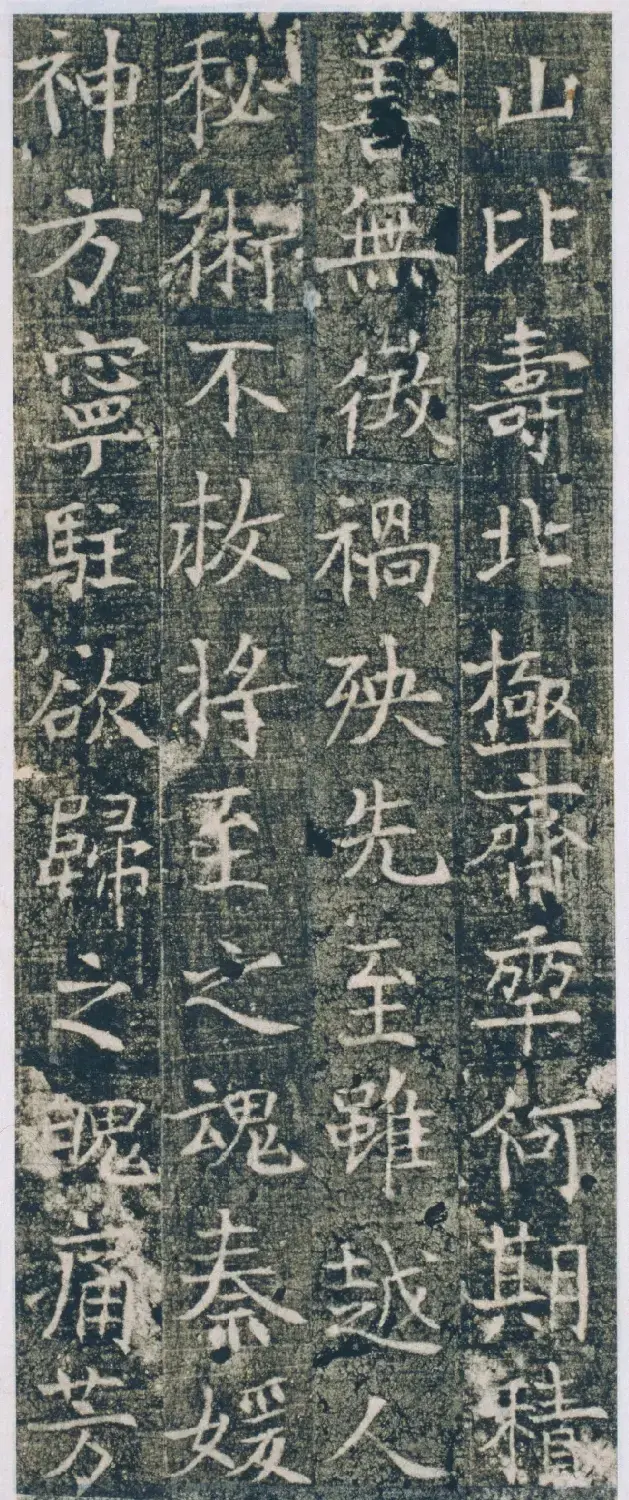 山比壽北極齊年何期積
善無徵禍殃先至雖越人
秘術不救將至之魂秦媛
神方寧駐欲歸之魄痛芳